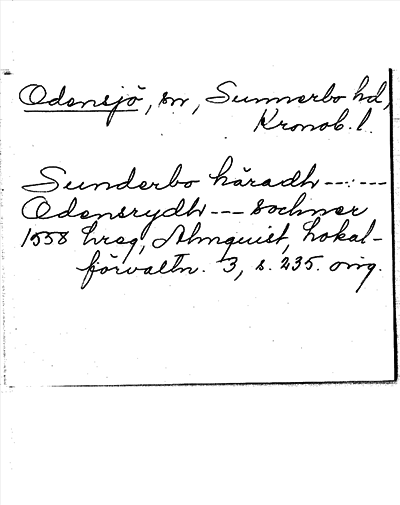 Odensjö, sn, Sunnerbo hd,
Kronob. l.
Sunderbo häradh --:---
Odensrydh --- sochner
1558 hreg, Almquist, Lokal-
förvaltn. 3, s. 235. orig.